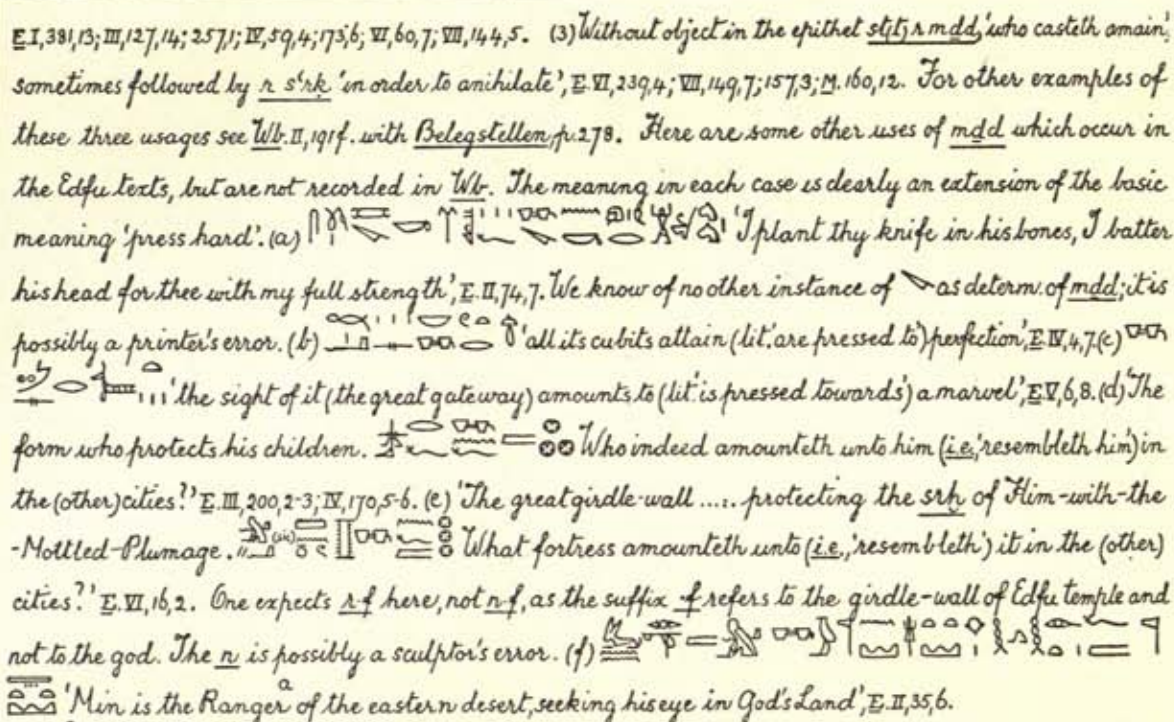 E.I,381,13; III,127,14; 257,1; IV,59,4; 173,6; VI,60,7; VII,144,5. (3) Without object in the epithet stjtj r mdd, 'who casteth amain',
sometimes followed by r sʿrḳ 'in order to anihilate', E.VI,239,4; VII,149,7; 157,3; M.160,12. For other examples of
these three usages see Wb.II,191f. with Belegstellen, p.278. Here are some other uses of mdd which occur in
the Edfu texts, but are not recorded in Wb. The meaning in each case is clearly an extension of the basic
meaning 'press hard'. (a) 'I plant thy knife in his bones, I batter
his head for thee with my full strength', E.II,74,7. We know of no other instance of as determ. of mdd; it is
possibly a printer's error. (b) 'all its cubits attain (lit. 'are pressed to') perfection', E.IV,4,7. (c)
'the sight of it (the great gateway) amounts to (lit. 'is pressed towards') a marvel', E.V,6,8. (d) 'The
form who protects his children. Who indeed amounteth unto him (i.e., 'resembleth him') in
the (other) cities?' E.III,200,2-3; IV,170,5-6. (e) 'The great girdle-wall ..... protecting the srḫ of Him-with-the
-Mottled-Plumage. (sic) What fortress amounteth unto (i.e., 'resembleth') it in the (other)
cities?' E.VI,16,2. One expects r·f here, not n·f, as the suffix ·f refers to the girdle-wall of Edfu temple and
not to the god. The n is possibly a sculptor's error. (f)
'Min is the Ranger a of the eastern desert, seeking his eye in God's Land', E.II,35,6.